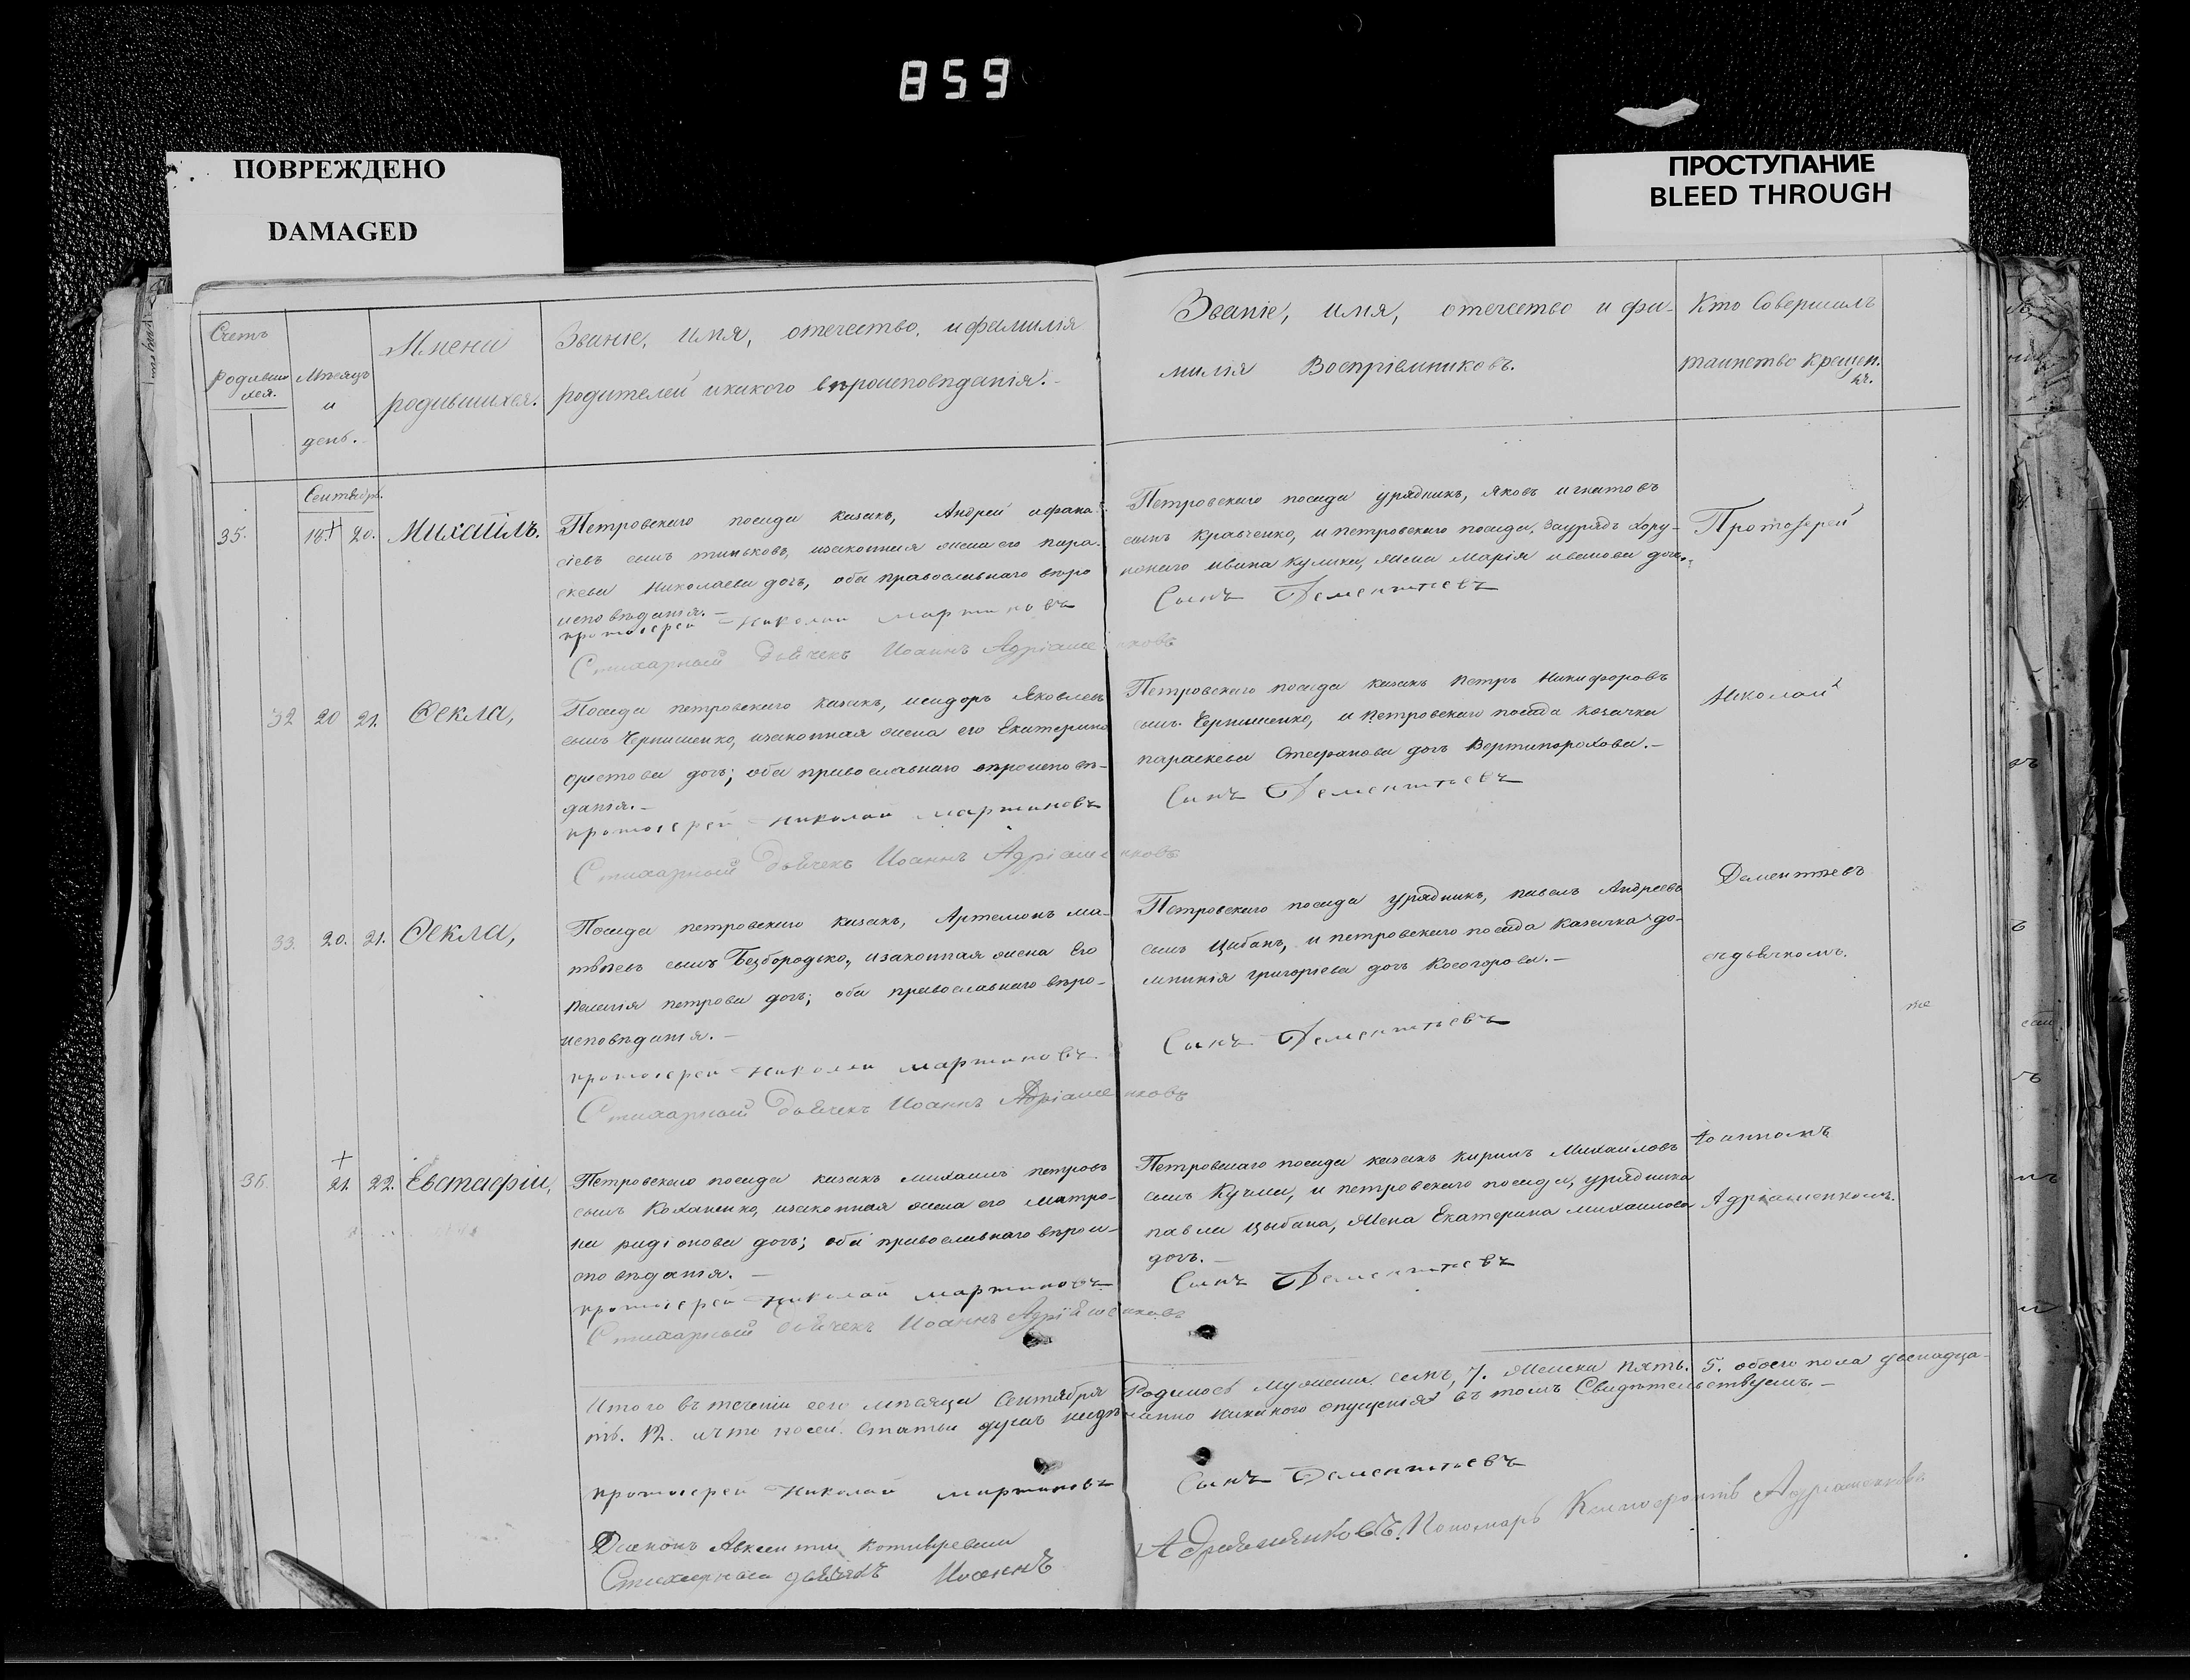 859
ПОВРЕЖДЕНО
DAMAGED
ПРОСТУПАНИЕ
BLEED THROUGH
Счетъ
родивши
хся.
Мѣсяцъ
и
день.
Имена
родившихся.
Званіе, имя, отечество, и фамилія
родителей и какого вѣроисповѣданія.
Званіе, имя, отечество и фа-
милія Воспріемниковъ.
Кто Совершалъ
таинство крещен.
Сентябрь.
35.
18.
20.
Михаилъ.
Петровскаго посада казакъ, Андрей афана
сіевъ сынъ тиньковъ, изаконная жена его пара-
скева Николаева дочь, оба православнаго вѣро
исповѣданія. —
протоіерей Николай мартиновъ
Стихарный Дьячекъ Иоаннъ Адріаше
нковъ
Петровскаго посада урядникъ, Яковъ игнатовъ
сынъ кравченко, и петровскаго посада, Заурядъ Хору-
нжаго ивана кулика, жена Марія иванова дочь.
Сынъ Дементьевъ
Протоіерей
32
20
21.
Ѳекла,
Посада петровскаго казакъ, исидоръ Яковлевъ
сынъ Чернишенко, изаконная жена его Екатерина
фистова дочь; оба православнаго вѣроисповѣ-
данія. —
протоіерей Николай мартиновъ
Стихарный Дьячекъ Иоаннъ Адріаше
нковъ
Петровскаго посада казакъ петръ Никифоровъ
сынъ Чернишенко, и петровскаго посада козачка
параскева Стефанова дочь Вертипорохова. —
Сынъ Дементьевъ
Николай
33.
20.
21.
Ѳекла,
Посада петровскаго казакъ, Артемонъ ма-
твѣевъ сынъ Безбородко, изаконная жена Его
пелагія петрова дочь; оба православнаго вѣро-
исповѣданія. —
протоіерей Николай мартиновъ
Стихарный Дьячекъ Иоаннъ Адріаше
нковъ
Петровскаго посада урядникъ, павелъ Андреевъ
сынъ Цибань, и петровскаго посада Казачка до-
мникія григоріева дочь Косогорова. —
Сынъ Дементьевъ
Дементьевъ
съдьячкомъ.
36.
21.
22.
Евстафій,
Петровскаго посада казакъ михаилъ петровъ
сынъ Коханенко, изаконная жена его матро-
на радіонова дочь; оба православнаго вѣрои-
сповѣданія. —
протоіерей Николай мартиновъ
Стихарный Дьячекъ Иоаннъ Адріаше
нковъ
Петровскаго посада казакъ кирилъ Михаиловъ
сынъ Кучма, и петровскаго посада, урядника
павла цыбаня, Жена Екатерина михаилова
дочь. —
Сынъ Дементьевъ
Іоанномъ
Адріашенкомъ.
Итого въ теченіи сего мѣсяца Сентября Родилось мужеска семь, 7. Женска пять. 5. обоего пола двенадца-
ть. 12. и что посей Статьи
никакого опущенія въ томъ Свидѣтельствуемъ. —
протоіерей Николай мартиновъ
Сынъ Дементьевъ
Диаконъ Авксентій
Стихарный дьячекъ Иоаннъ
Адріяшенковъ. Пономарь
Адріашенковъ